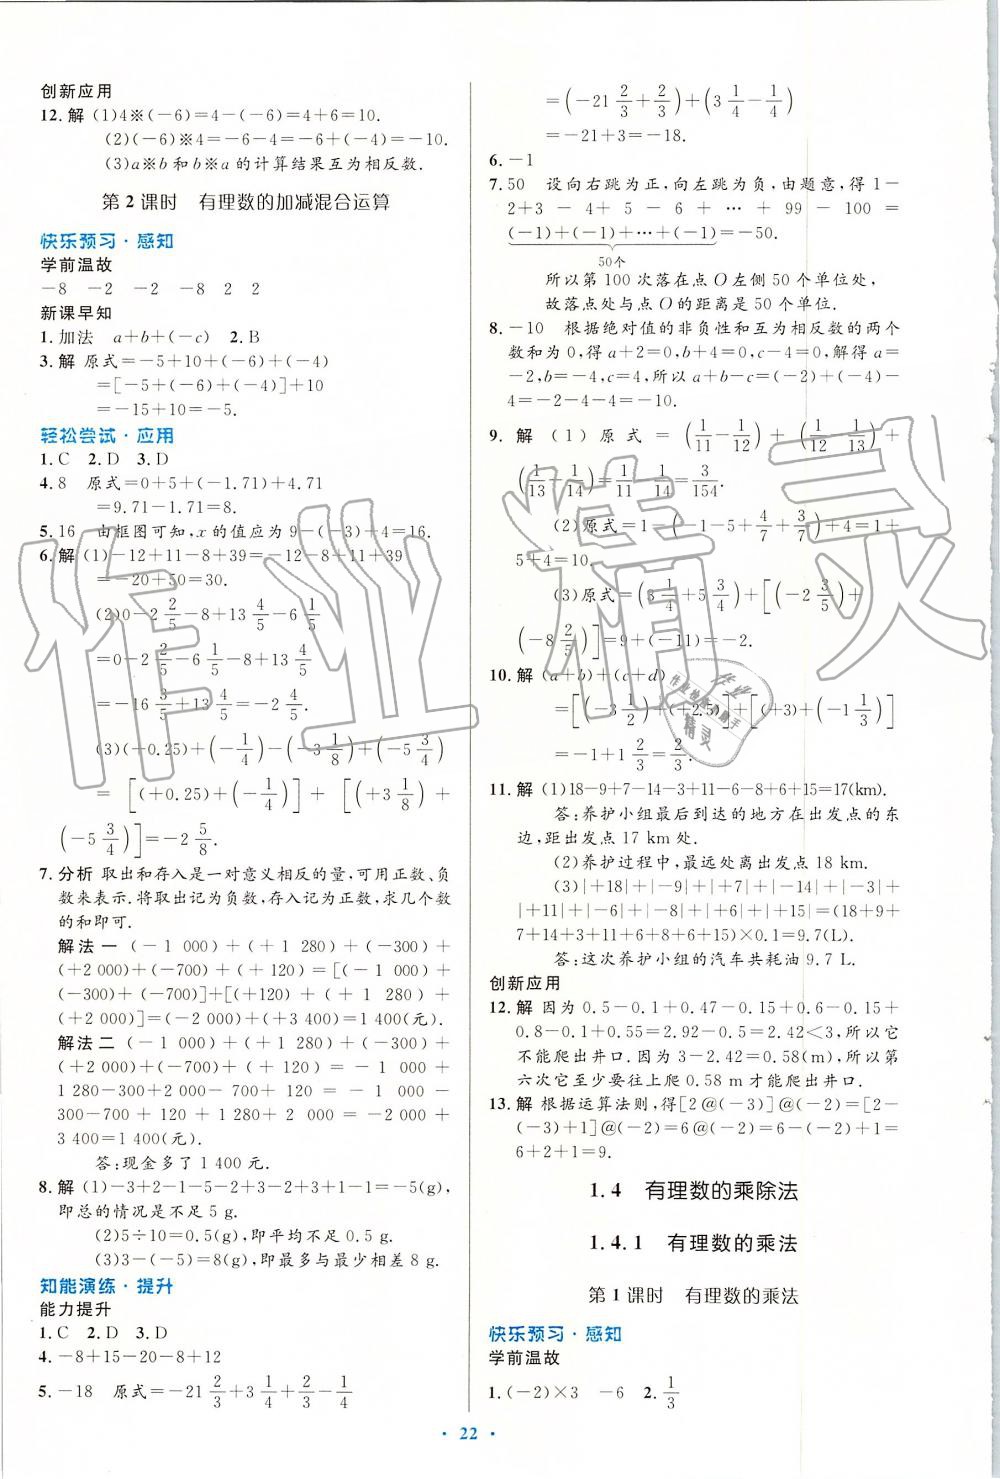 创新应用
12. 解 (1)4※(-6)=4-(-6)=4+6=10.
(2)(-6)※4=-6-4=-6+(-4)=-10.
(3)a※b 和 b※a 的计算结果互为相反数.
第 2 课时 有理数的加减混合运算
快乐预习·感知
学前温故
-8 -2 -2 -8 2 2
新课早知
1. 加法 a+b+(-c) 2. B
3. 解 原式=-5+10+(-6)+(-4)
=[-5+(-6)+(-4)]+10
=-15+10=-5.
轻松尝试·应用
1. C 2. D 3. D
4. 8 原式=0+5+(-1.71)+4.71
=9.71-1.71=8.
5. 16 由框图可知,x 的值应为 9-(-3)+4=16.
6. 解 (1)-12+11-8+39=-12-8+11+39
=-20+50=30.
(2)0-2 2/5-8+13 4/5-6 1/5
=0-2 2/5-6 1/5-8+13 4/5
=-16 3/5+13 4/5=-2 4/5.
(3)(-0.25)+(-1/4)-(-3 1/8)+(-5 3/4)
=[(+0.25)+(-1/4)] + [(+3 1/8) +
(-5 3/4)]=-2 5/8.
7. 分析 取出和存入是一对意义相反的量,可用正数、负
数来表示.将取出记为负数,存入记为正数,求几个数
的和即可.
解法一 (-1 000)+(+1 280)+(-300)+
(+2 000)+(-700)+(+120)=[(-1 000)+
(-300)+(-700)]+[(+120)+(+1 280)+
(+2 000)]=(-2 000)+(+3 400)=1 400(元).
解法二 (-1 000)+(+1 280)+(-300)+
(+2 000)+(-700)+(+120)=-1 000+
1 280-300+2 000-700+120=-1 000-
300-700+120+1 280+2 000=-2 000+
3 400=1 400(元).
答:现金多了 1 400 元.
8. 解 (1)-3+2-1-5-2+3-2+3+1-1=-5(g),
即总的情况是不足 5 g.
(2)5÷10=0.5(g),即平均不足 0.5 g.
(3)3-(-5)=8(g),即最多与最少相差 8 g.
知能演练·提升
能力提升
1. C 2. D 3. D
4. -8+15-20-8+12
5. -18 原式=-21 2/3+3 1/4+2/3-1/4
=(-21 2/3+2/3)+(3 1/4-1/4)
=-21+3=-18.
6. -1
7. 50 设向右跳为正,向左跳为负,由题意,得 1-
2+3-4+5-6+…+99-100=
(-1)+(-1)+…+(-1)=-50.
50个
所以第 100 次落在点 O 左侧 50 个单位处,
故落点处与点 O 的距离是 50 个单位.
8. -10 根据绝对值的非负性和互为相反数的两个
数和为 0,得 a+2=0,b+4=0,c-4=0,解得 a=
-2,b=-4,c=4,所以 a+b-c=(-2)+(-4)-
4=-2-4-4=-10.
9. 解 (1)原式=(1/11-1/12)+(1/12-1/13)+
(1/13-1/14)=1/11-1/14=3/154.
(2)原式=1-(-1-5+4/7+3/7)+4=1+
5+4=10.
(3)原式=(3 1/4+5 3/4)+[(-2 3/5)+
(-8 2/5)]=9+(-11)=-2.
10. 解 (a+b)+(c+d)
=[(-3 1/2)+(+2.5)]+[(+3)+(-1 1/3)]
=-1+1 2/3=2/3.
11. 解 (1)18-9+7-14-3+11-6-8+6+15=17(km).
答:养护小组最后到达的地方在出发点的东
边,距出发点 17 km 处.
(2)养护过程中,最远处离出发点 18 km.
(3)|+18|+|-9|+|+7|+|-14|+|-3|+
|+11|+|-6|+|-8|+|+6|+|+15|=(18+9+
7+14+3+11+6+8+6+15)×0.1=9.7(L).
答:这次养护小组的汽车共耗油 9.7 L.
创新应用
12. 解 因为 0.5-0.1+0.47-0.15+0.6-0.15+
0.8-0.1+0.55=2.92-0.5=2.42<3,所以它
不能爬出井口.因为 3-2.42=0.58(m),所以第
六次它至少要往上爬 0.58 m 才能爬出井口.
13. 解 根据运算法则,得[2@(-3)]@(-2)=[2-
(-3)+1]@(-2)=6@(-2)=6-(-2)+1=
6+2+1=9.
1.4 有理数的乘除法
1.4.1 有理数的乘法
第 1 课时 有理数的乘法
快乐预习·感知
学前温故
1. (-2)×3 -6 2. 1/3
· 22 ·
作业精灵
作业
精灵